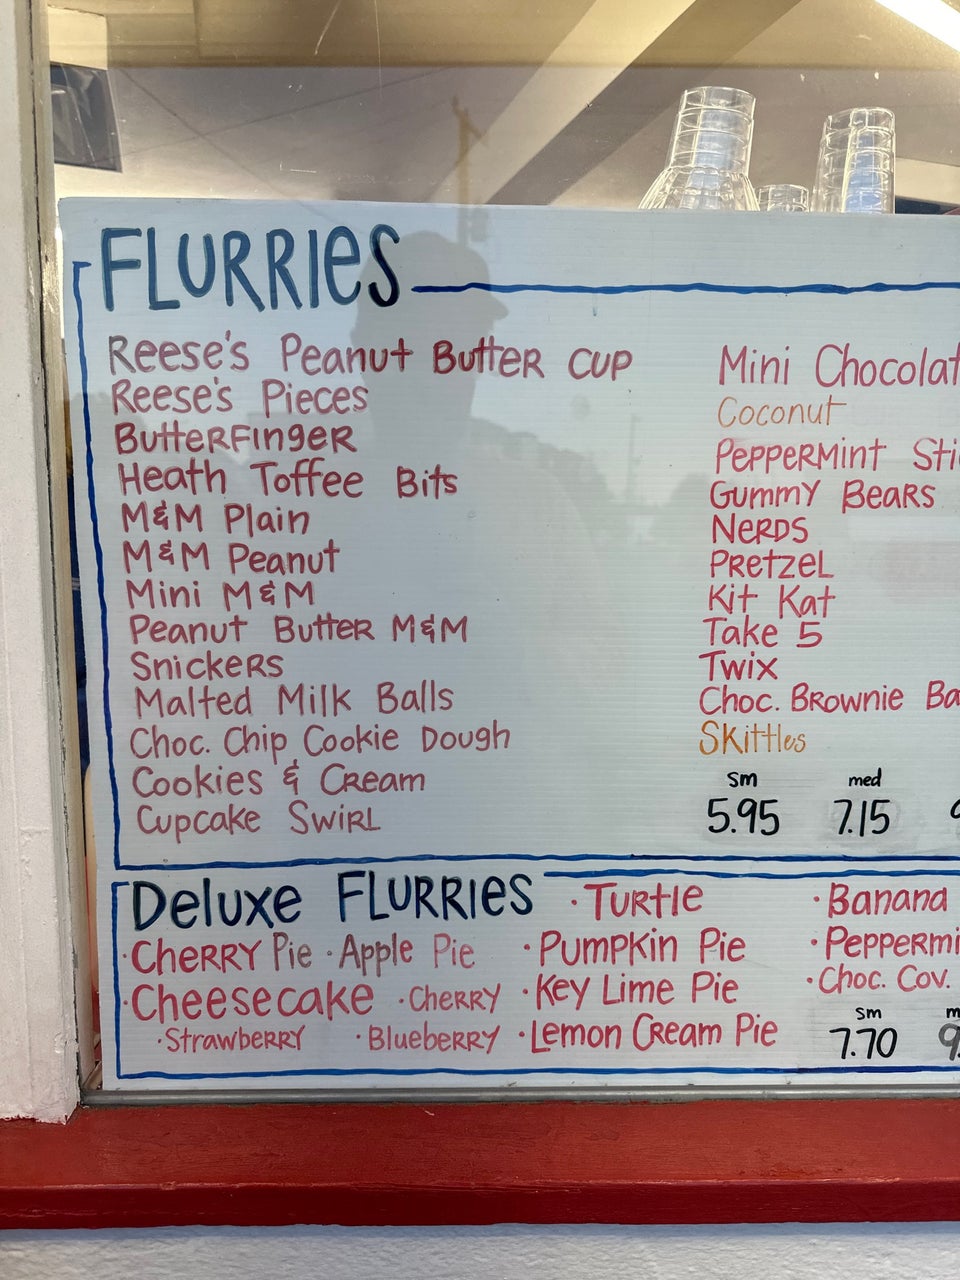 FLURRIES
Reese's Peanut Butter Cup
Reese's Pieces
Butterfinger
Heath Toffee Bits
M&M Plain
M&M Peanut
Mini M&M
Peanut Butter M&M
Snickers
Malted Milk Balls
Choc. Chip Cookie Dough
Cookies & Cream
Cupcake Swirl
Mini Chocolat
Coconut
Peppermint Sti
Gummy Bears
Nerds
Pretzel
Kit Kat
Take 5
Twix
Choc. Brownie Ba
Skittles
sm med
5.95 7.15
Deluxe FLURRIES
· Turtle
· Banana
· Cherry Pie · Apple Pie
· Pumpkin Pie
· Peppermi
· Cheesecake · Cherry
· Key Lime Pie
· Choc. Cov.
· Strawberry · Blueberry
· Lemon Cream Pie
sm m
7.70 9.